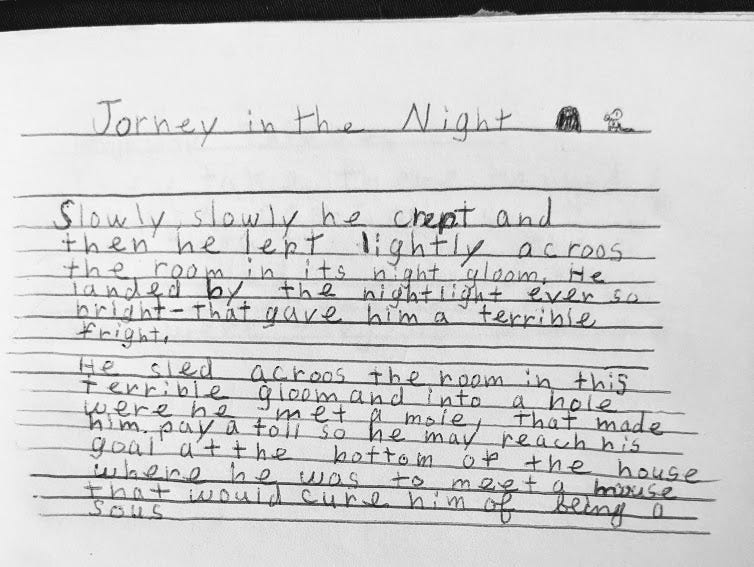 Jorney in the Night
Slowly, slowly he crept and
then he lept lightly acroos
the room in its night gloom. He
landed by the nightlight ever so
bright-that gave him a terrible
fright.
He sled acroos the room in this
terrible gloom and into a hole
were he met a mole, that made
him pay a toll so he may reach his
goal at the bottom of the house
where he was to meet a mouse
that would cure him of being a
sous